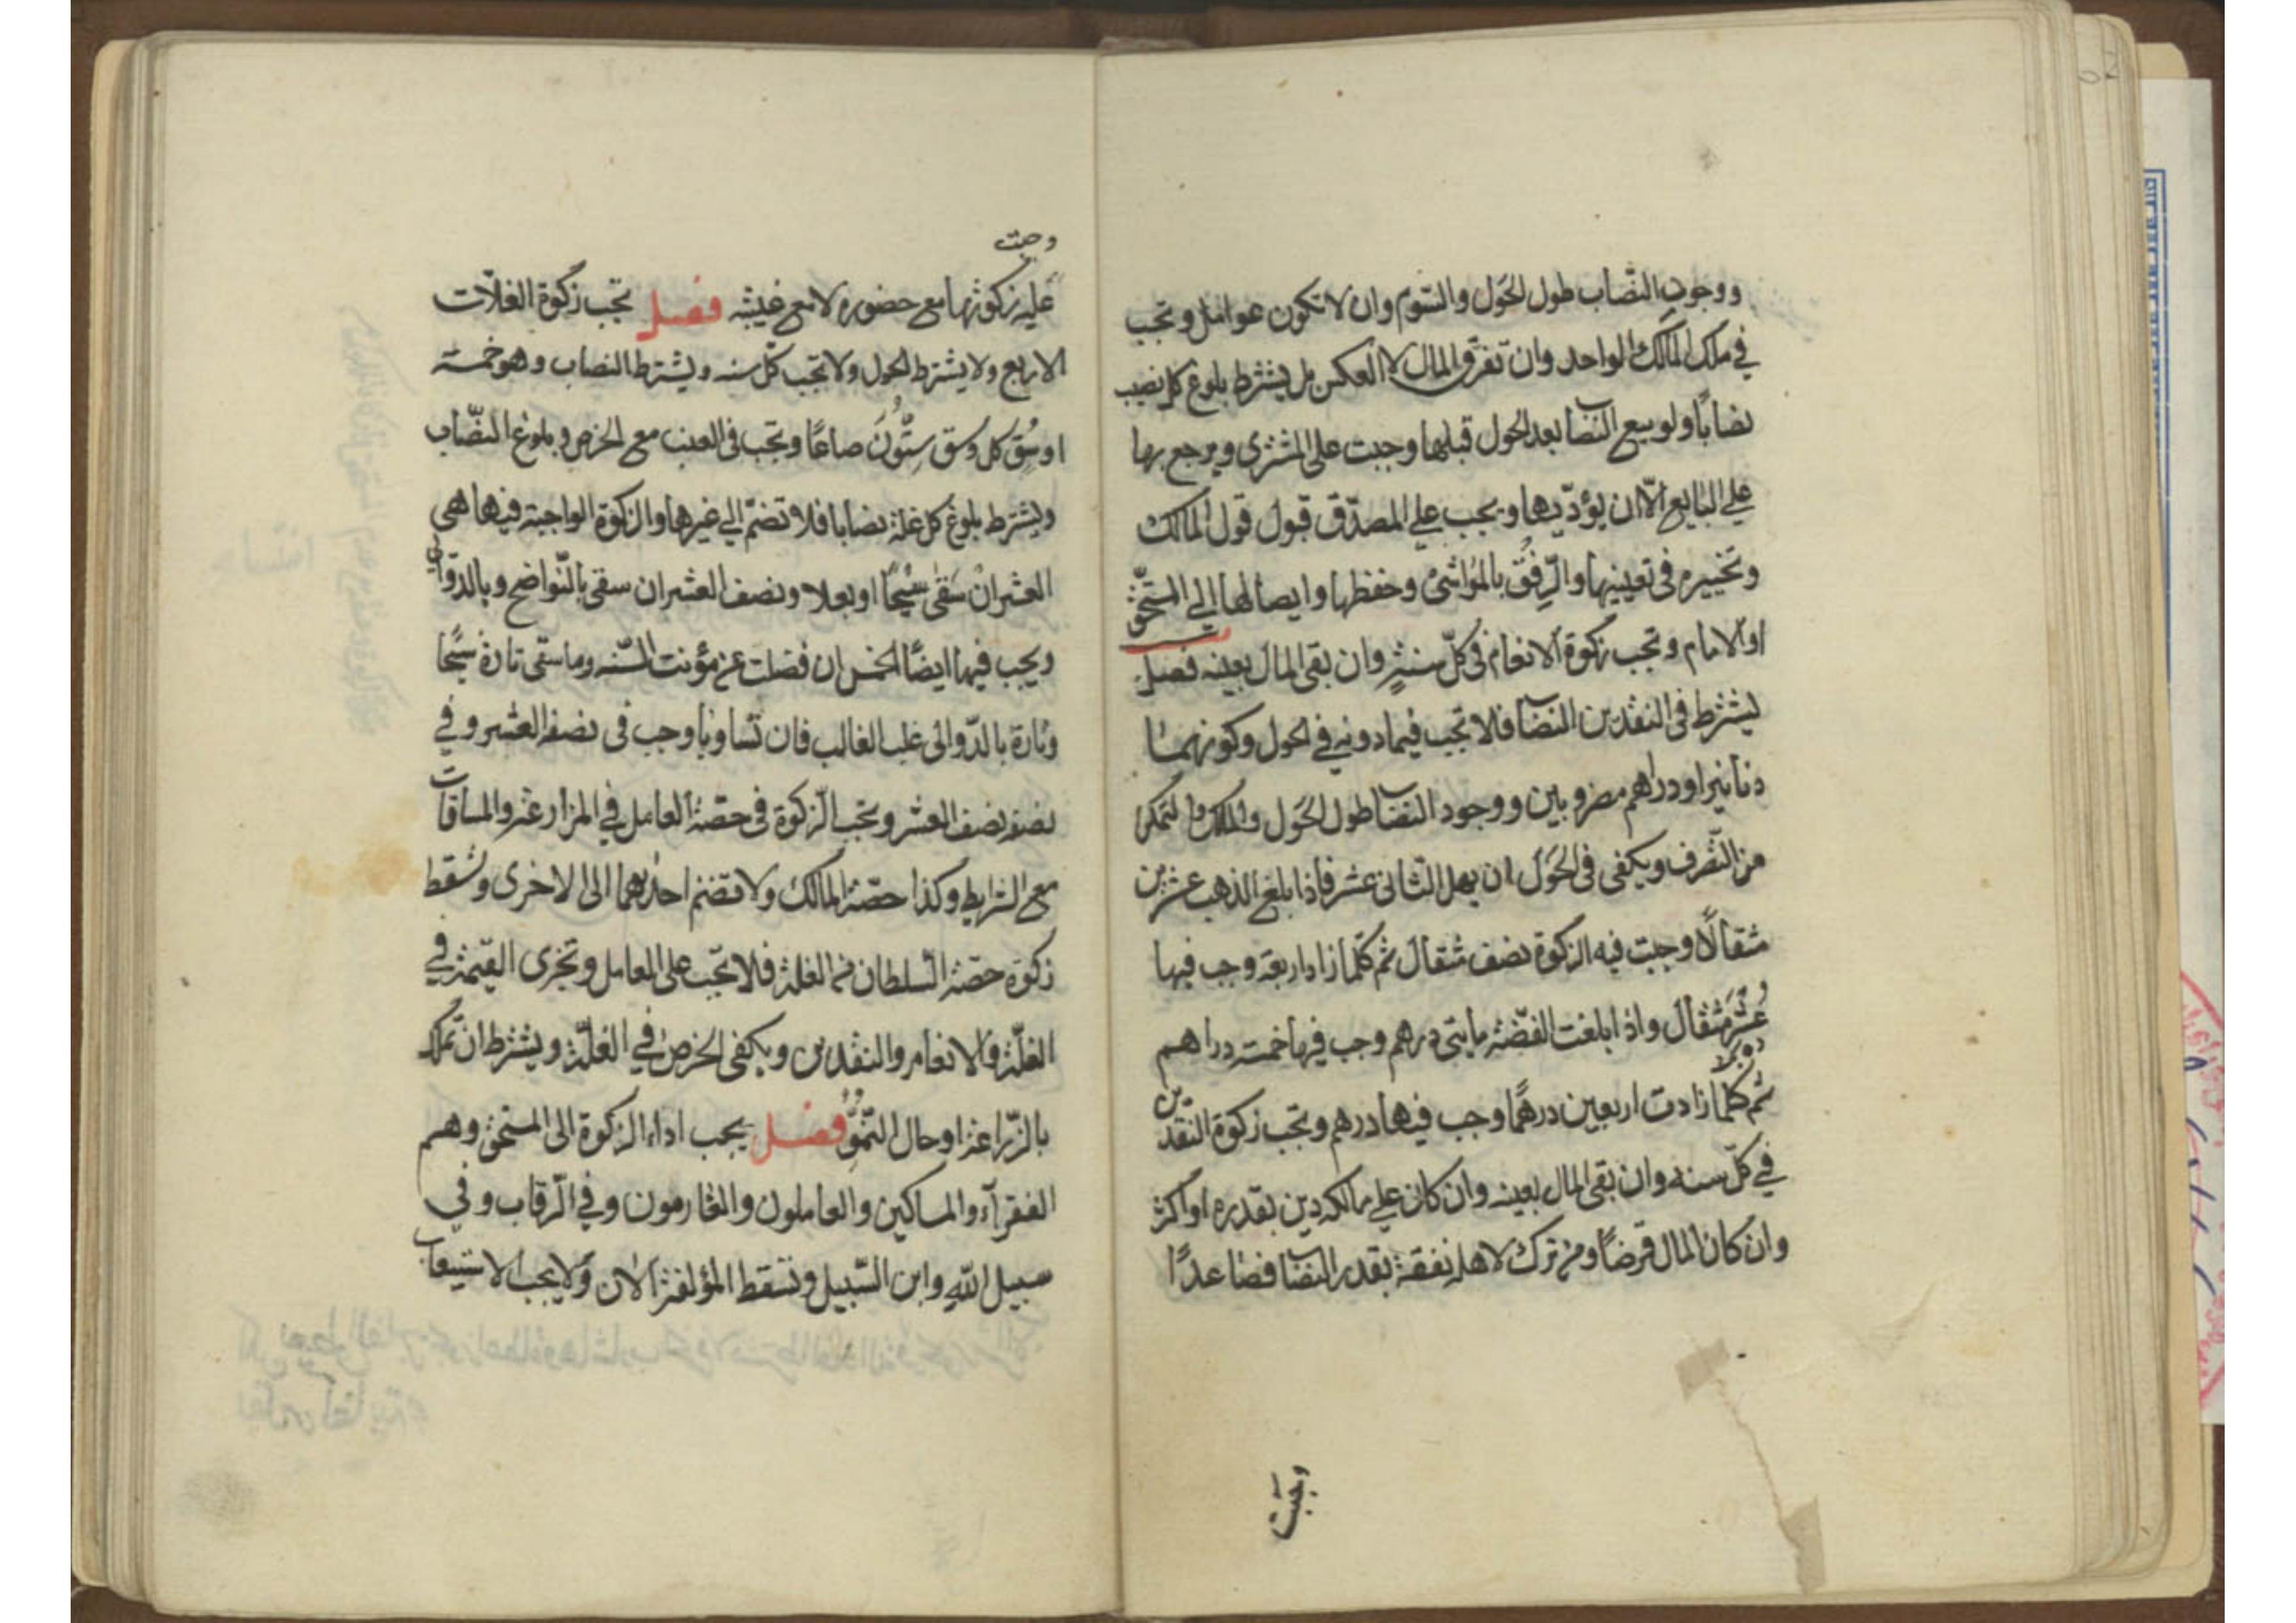 ووجود النّصاب طول الحَول والسّوم وان لا تكون عوامل وتجب
في ملك المالك الواحد وان تفرق المال لا العكس بل يشترط بلوغ كل نصيب
نصابًا ولو بيع النصاب بعد الحول قبلها وجبت على المشترى ويرجع بها
على البايع الّا ان يؤدّيها ويجب على المصدّق قبول قول المالك
وتخييره فى تعيينها والرِفُق بالمواشى وحفظها وايصالها الى المستحّق
او الامام وتجب زكوة الانعام فى كلّ سنة وان بقى المال بعينه فصل
يشترط فى النقدين النصاب فلا تجب فيما دونه في الحول وكونهما
دنانير او دراهم مضروبين ووجود النصاب طول الحَول والملك والتمكن
من التّصرف ويكفى فى الحَول ان يهل الثانى عشر فاذا بلغ الذهب عشرين
مثقالًا وجبت فيه الزكوة نصف مثقال ثم كلّما زاد اربعة وجب فيها
عُشر مثقال واذا بلغت الفضّة مايتى درهم وجب فيها خمسة دراهم
ثم كلّما زادت اربعين درهمًا وجب فيها درهم وتجب زكوة النقدين
في كلّ سنه وان بقى المال بعينه وان كان على مالكه دين بقدره او اكثر
وان كان المال قرضًا ومن ترك لاهله نفقة بقدر النصاب فصاعدًا
وجبت
وجبت
عليه زكوتها مع حضوره لا مع غيبته فصل تجب زكوة الغلّات
الاربع ولا يشترط الحول ولا تجب كلّ سنه ويشترط النصاب وهو خمسة
اوسُق كل وسق ستُّونَ صاعًا وتجب فى العنب مع الخرص وبلوغ النصّاب
ويشترط بلوغ كل غلة نصابا فلا تضمّ الي غيرها والزكوة الواجبة فيها هى
العشر ان سَقى سيْحًا او بعلا ونصف العشر ان سقى بالنّواضح وبالدوالي
ويجب فيها ايضًا الخمس ان فضلت عن مؤنت السّنه وما سقى تارة سيًحا
وتارة بالدّوالى غلب الغالب فان تساويا وجب فى نصفه العشر وفي
نصفه نصف العشر وتجب الزكوة فى حصّة العامل في المزارعة والمساقات
مع الشرايط وكذا حصّة المالك ولا تضم احديهما الى الاخرى وتسقط
زكوة حصّة السلطان من الغلة فلا تجب على العامل وتجزى القيمة في
الغلّة والانعام والنقدين ويكفى الخرص في الغلّة ويشترط ان تملك
بالزّراعة او حال النّموّ فصل يجب اداء الزكوة الى المستحق وهم
الفقرآء والمساكين والعاملون والغارمون وفي الرّقاب وفي
سبيل اللّه وابن السّبيل وتسقط المؤلفة الان ولا يجب الاستيعاب